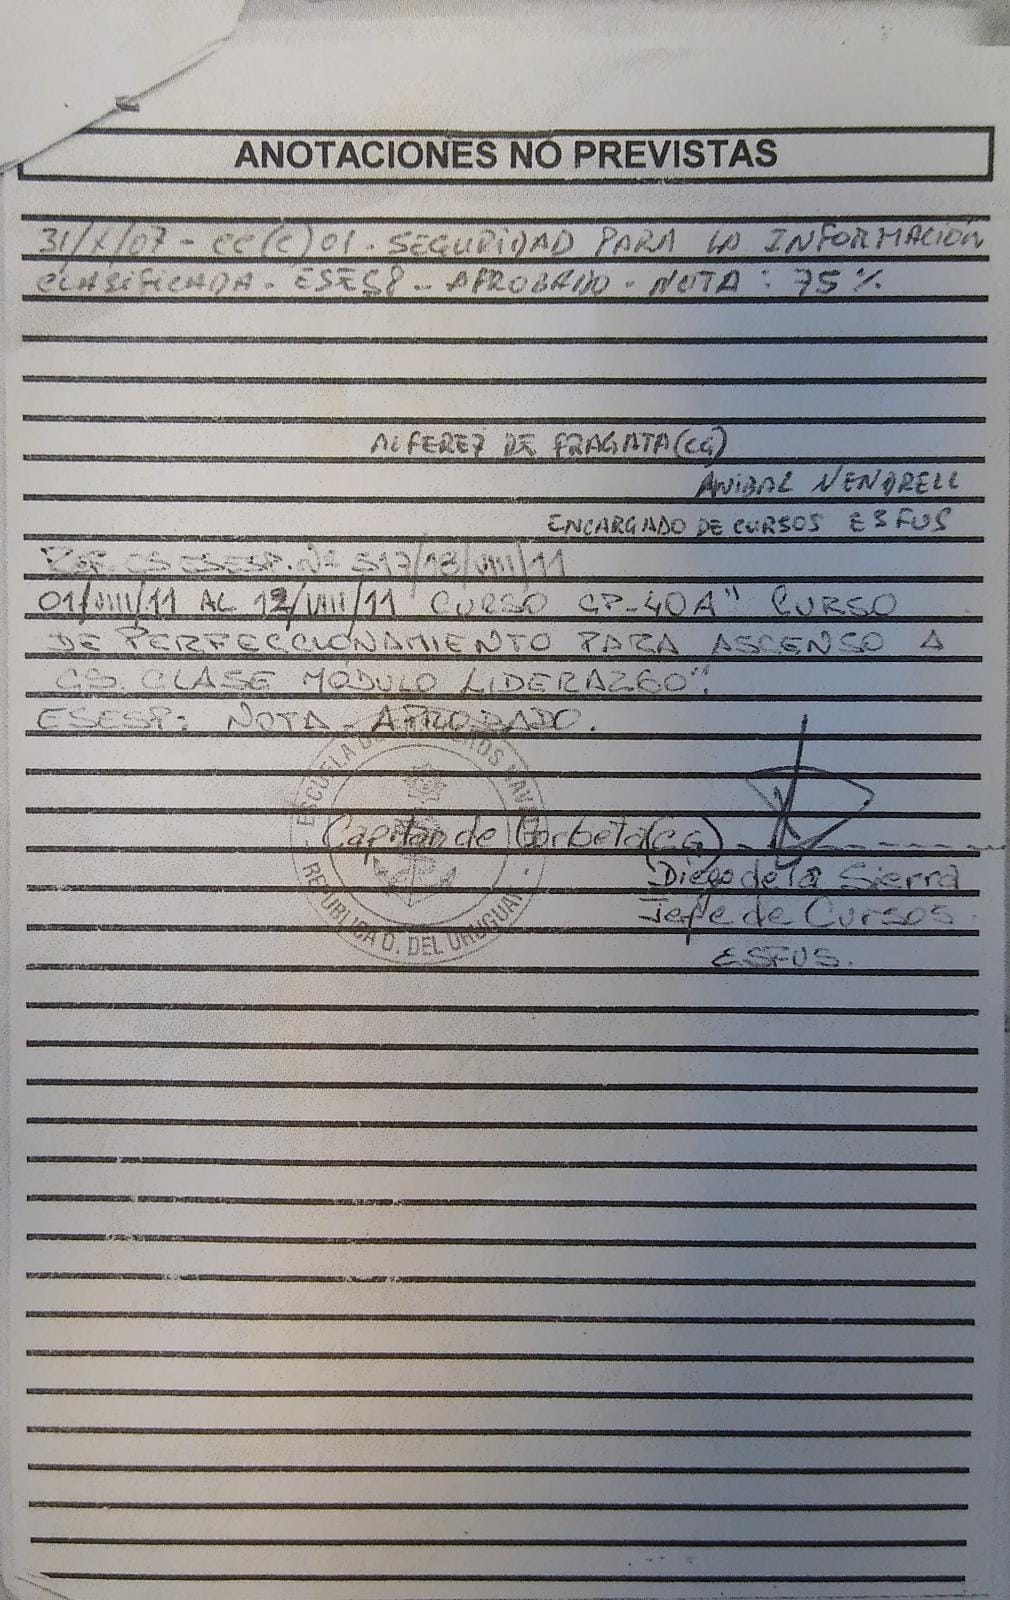 ANOTACIONES NO PREVISTAS
31/X/07 - CC(C)01. SEGURIDAD PARA LA INFORMACIÓN
CLASIFICADA - ESESP - APROBADO - NOTA: 75%
ALFEREZ DE FRAGATA (CG)
ANIBAL VENDRELL
ENCARGADO DE CURSOS ESFUS
ESESP. Nº 317/18/VIII/11
01/VIII/11 AL 12/VIII/11 CURSO CP-40A" CURSO
DE PERFECCIONAMIENTO PARA ASCENSO A
CLASE MÓDULO LIDERAZGO".
ESESP: NOTA - APROBADO.
ESCUELA DE
REPUBLICA O. DEL URUGUAY
Capitan de Corbeta (CG)
Diego de la Sierra
Jefe de Cursos
ESFUS.